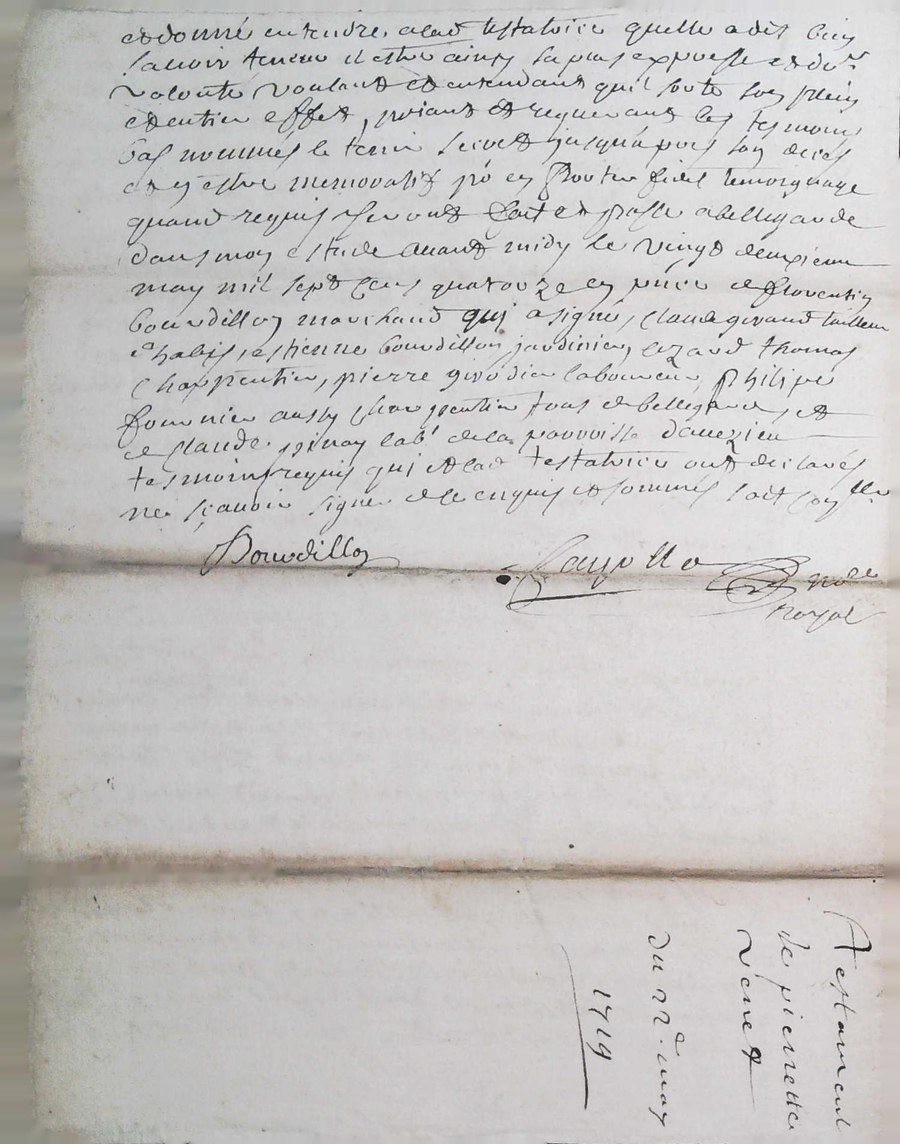 et donné entendre alad testatrice quelle a dit bien
scavoir teneur il estre ainsy sa plus expresse et der.
volonté voulant et entendant quil sorte son plein
et entier effet, priant et requerant les tesmoins
bas nommes le tenir secret jusqu'apres son deces
et y estre memoratif pr en porter fidel temoignage
quand requis seront fait et passé a bellegarde
dans mon estude avant midy le vingt deuxieme
may mil sept cens quatorze en pnce de florentin
bourdillon marchand qui a signé, claude giraud tailleur
d'habis, estienne bourdillon jardinier, thomas
charpentier, pierre girodier laboureur philipe
fournier aussy charpentier tous de bellegarde, et
de claude lab.r de la parroisse
tesmoins requis qui et lad testatrice ont declarés
ne scavoir signer de ce enquis et sommés soit con.lle
Bourdillon
nore
royal
Testament
de pierrette
venet
du 22e. may
1714